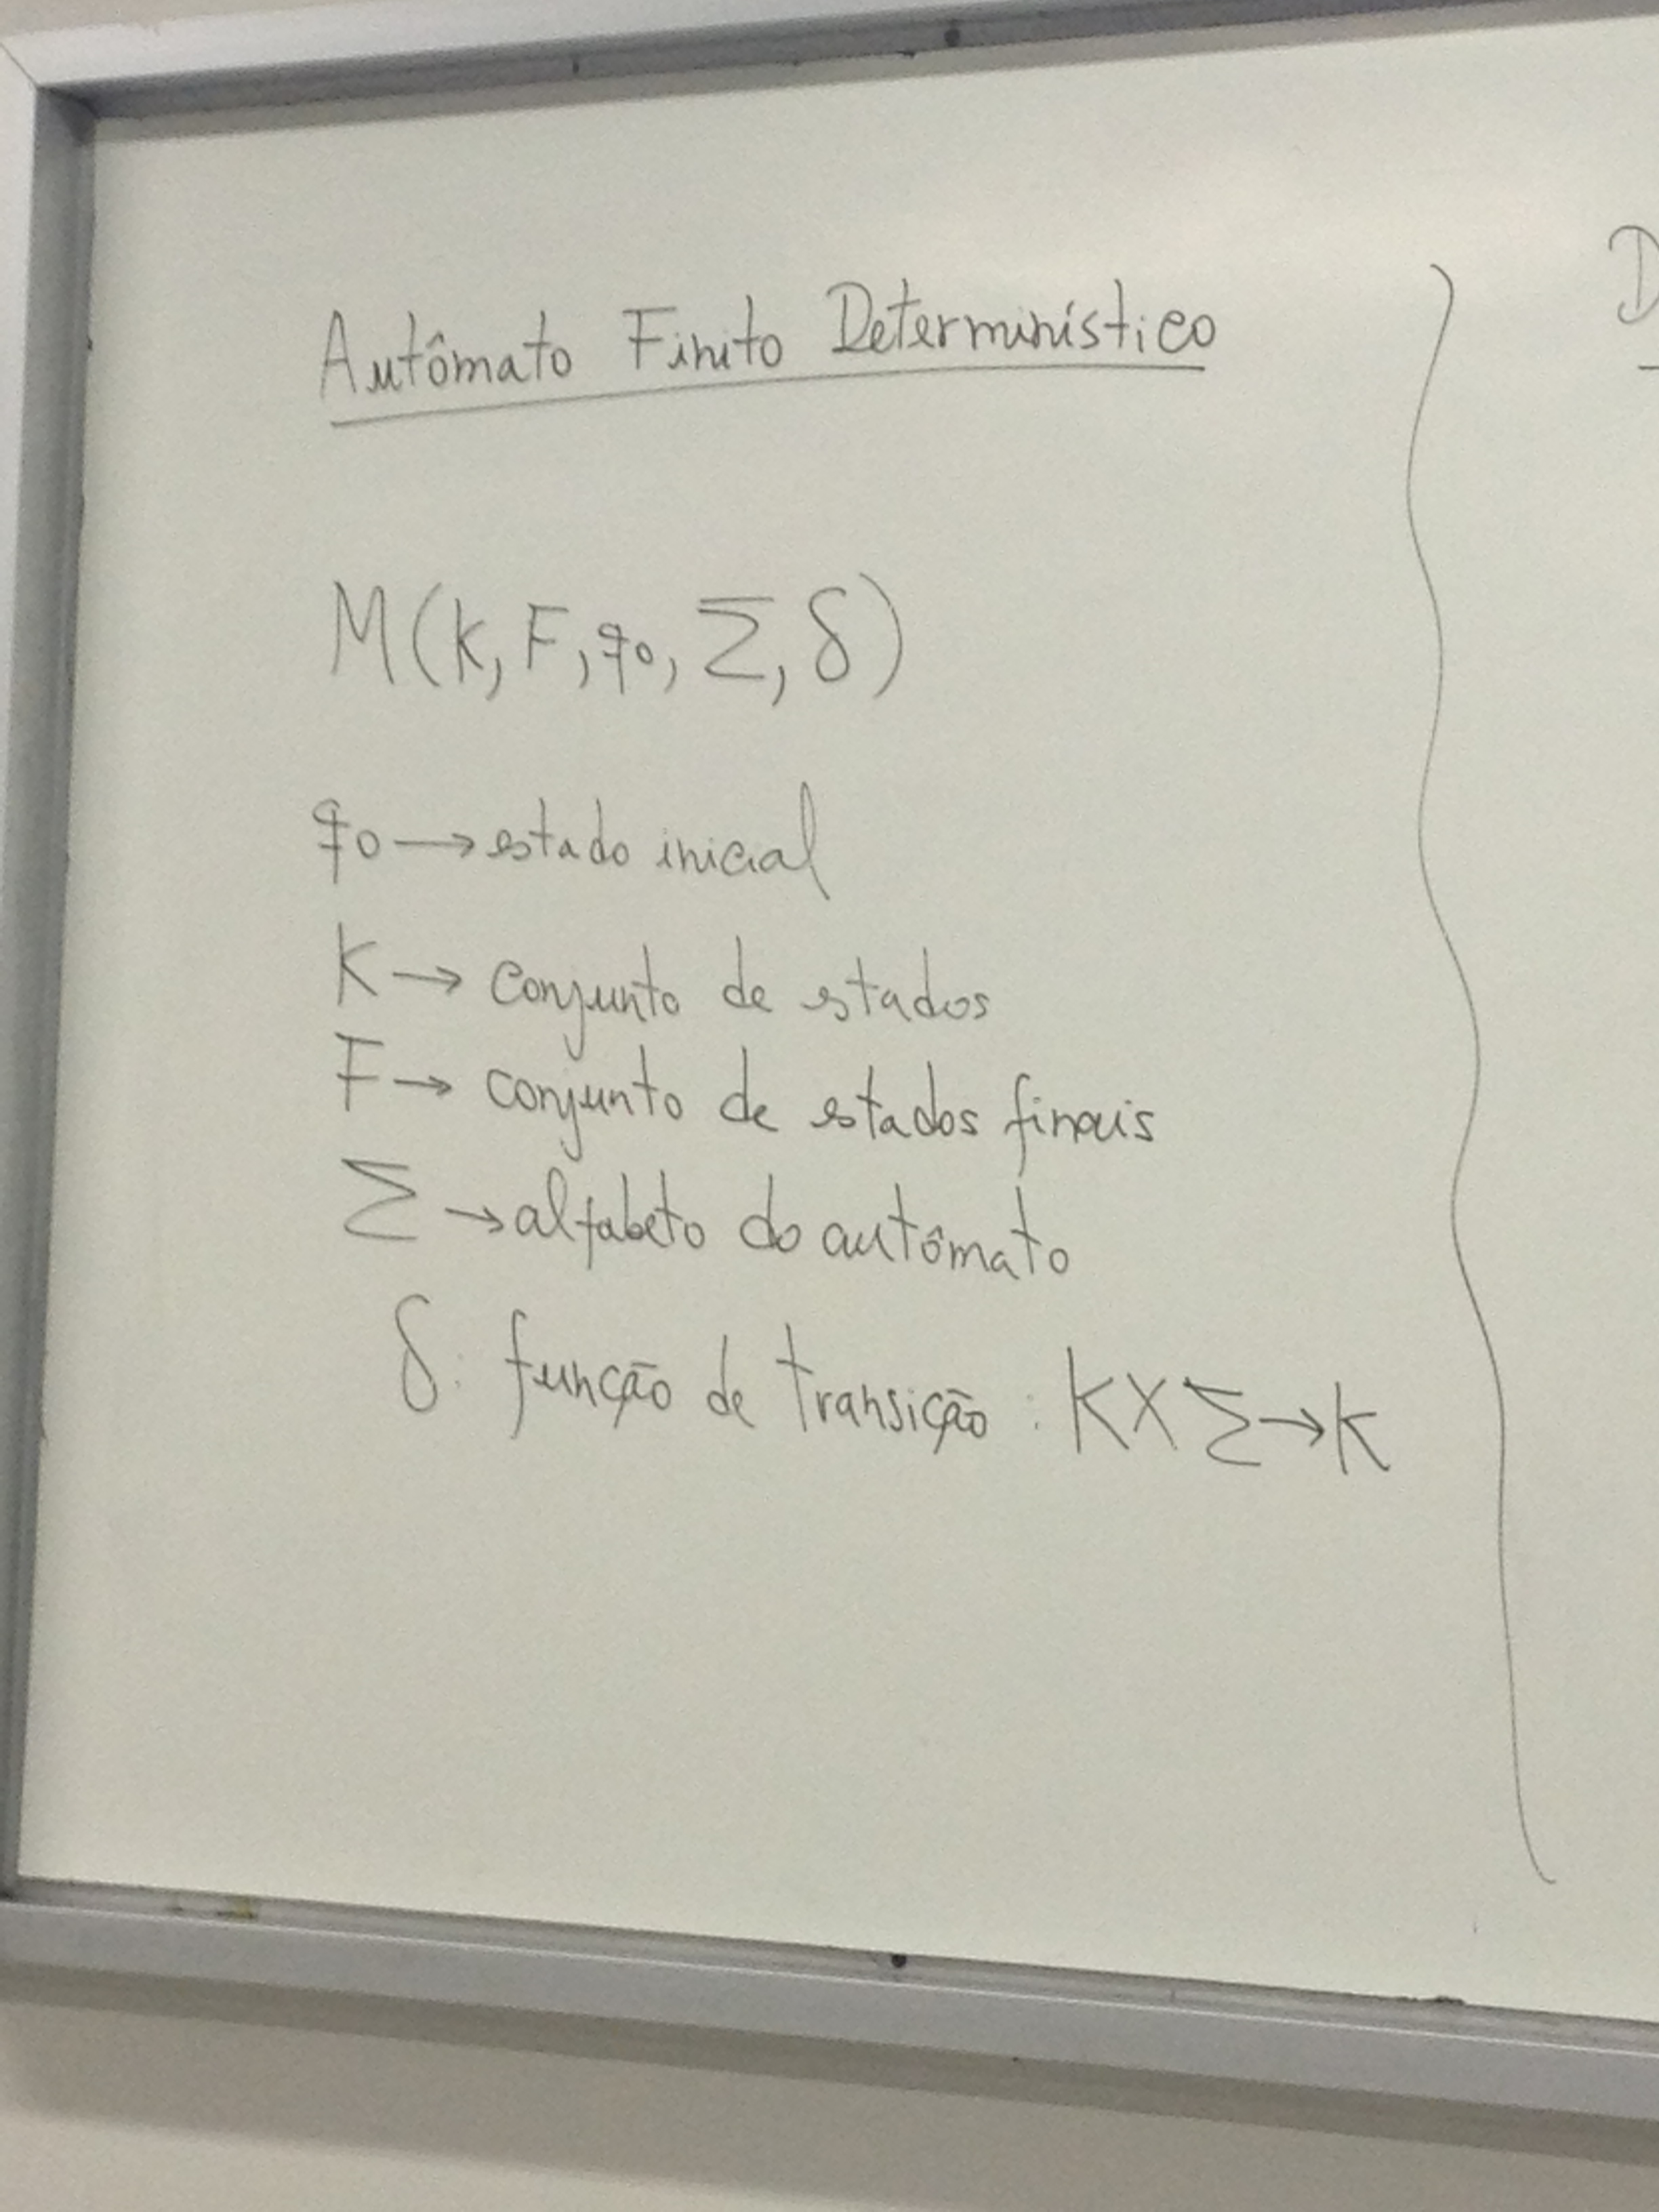 Autômato Finito Determinístico
M(K, F, q0, Σ, δ)
q0 → estado inicial
K → conjunto de estados
F → conjunto de estados finais
Σ → alfabeto do autômato
δ: função de transição: K X Σ → K